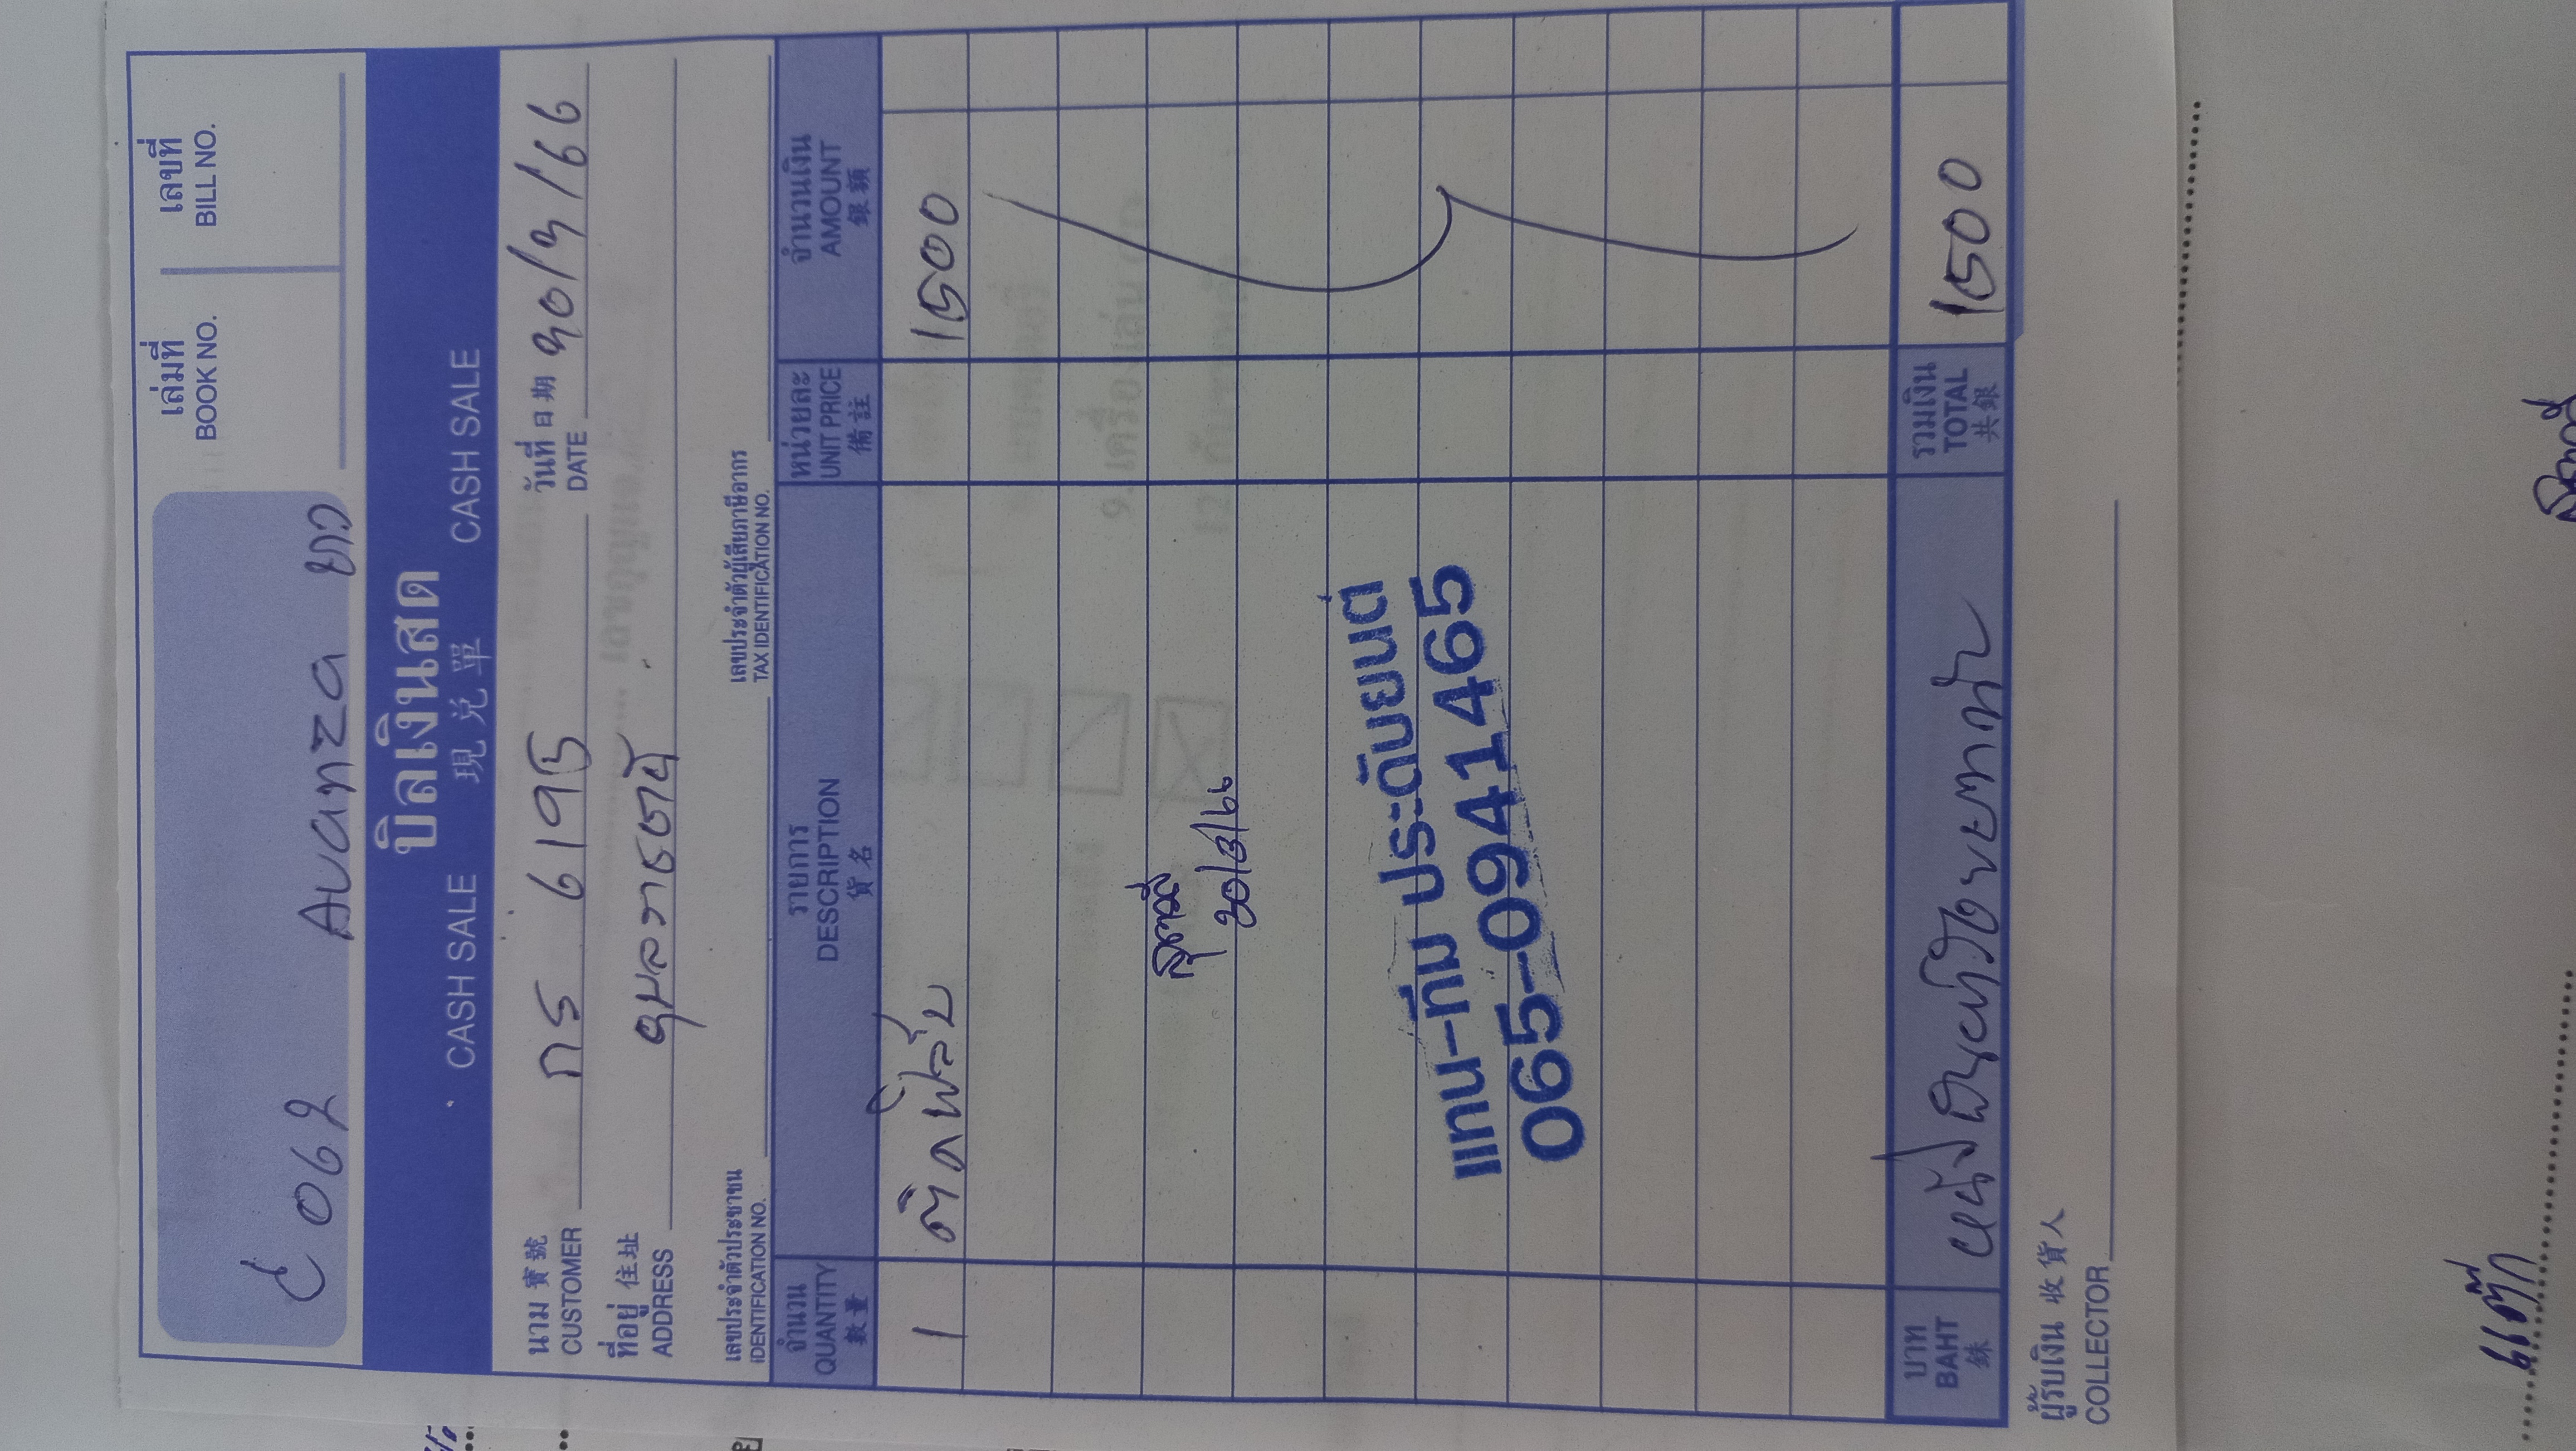 เล่มที่ เลขที่
BOOK NO. BILL NO.
C 062 Avanza ขาว
บิลเงินสด
CASH SALE 現兌單 CASH SALE
นาม 寶號 กร 6195 วันที่ 日期 30/3/66
CUSTOMER DATE
ที่อยู่ 住址 อุบลราชธานี
ADDRESS
เลขประจำตัวประชาชน เลขประจำตัวผู้เสียภาษีอากร
IDENTIFICATION NO. TAX IDENTIFICATION NO.
จำนวน รายการ หน่วยละ จำนวนเงิน
QUANTITY DESCRIPTION UNIT PRICE AMOUNT
數量 貨名 備註 銀額
1 ติดฟิล์ม 1500
30/3/66
แทน-ทีม ประดับยนต์
065-0941465
บาท หนึ่งพันห้าร้อยบาทถ้วน รวมเงิน 1500
BAHT TOTAL
銖 共銀
ผู้รับเงิน 收貨人
COLLECTOR